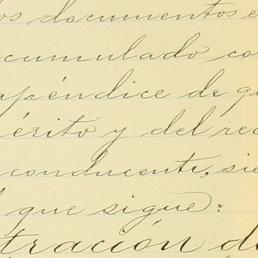 os documentos e
cumulado co
apéndice de q
érito y del rec
conducente, sie
l que sigue:
tración de